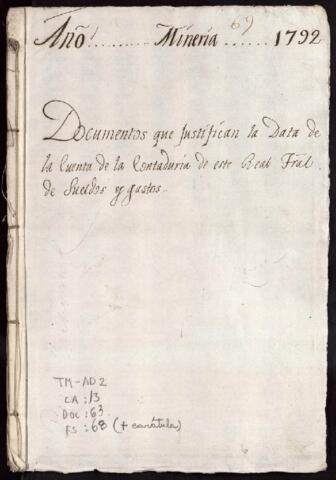 69
Año ........ Mineria ...... 1792
Documentos que Justifican la Data de
la Cuenta de la Contaduria de este Real Fral
de Sueldos y gastos..
TM-AD2
CA:13
DOC:63
FS:68 (+ carátula)